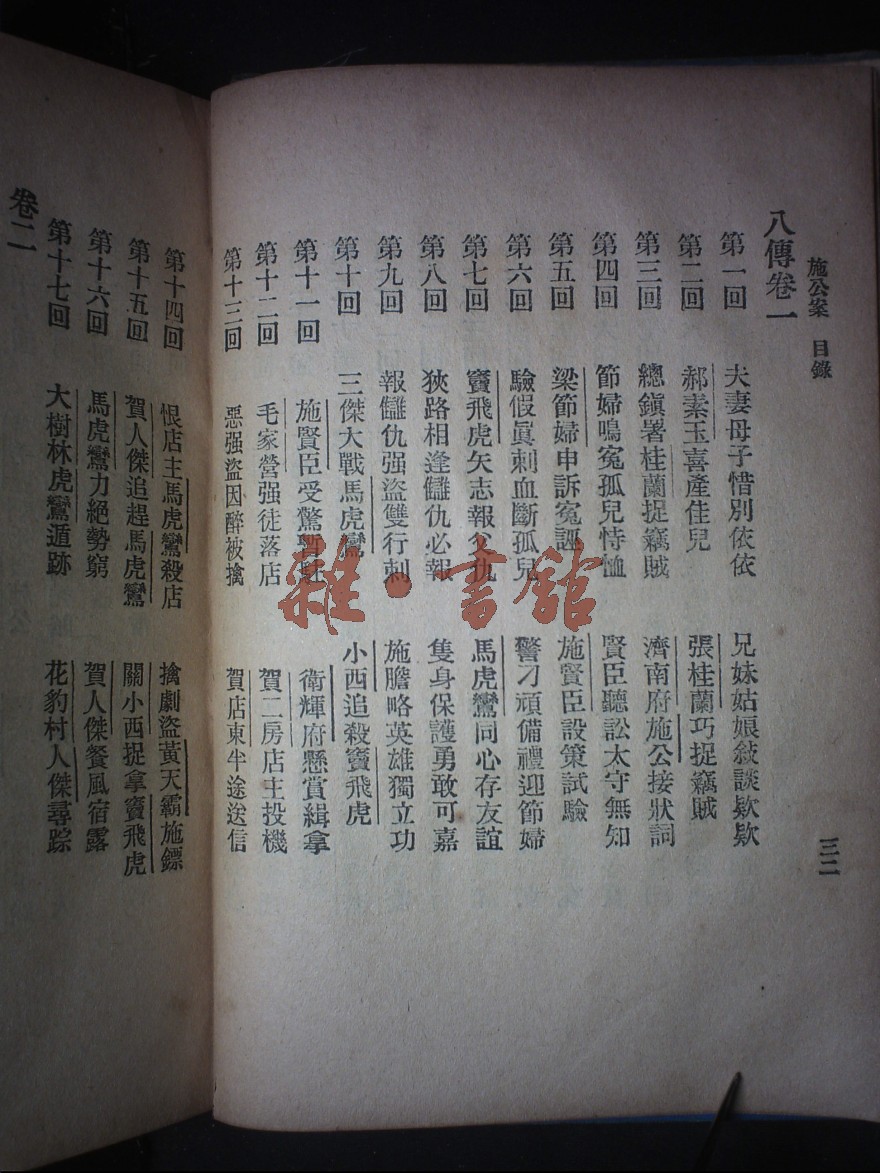 施公案 目錄
三二
八傳卷一
第一回 夫妻母子惜別依依 兄妹姑娘敍談欵欵
第二回 郝素玉喜產佳兒 張桂蘭巧捉竊賊
第三回 總鎮署桂蘭捉竊賊 濟南府施公接狀詞
第四回 節婦鳴寃孤兒恃恤 賢臣聽訟太守無知
第五回 梁節婦申訴寃誣 施賢臣設策試驗
第六回 驗假眞刺血斷孤兒 警刁頑備禮迎節婦
第七回 竇飛虎矢志報父仇 馬虎鸞同心存友誼
第八回 狹路相逢讎仇必報 隻身保護勇敢可嘉
第九回 報讎仇强盜雙行刺 施膽略英雄獨立功
第十回 三傑大戰馬虎鸞 小西追殺竇飛虎
第十一回 施賢臣受驚暫駐 衛輝府懸賞緝拿
第十二回 毛家營强徒落店 賀二房店主投機
第十三回 惡强盜因醉被擒 賀店東半途送信
第十四回 恨店主馬虎鸞殺店 擒劇盜黃天霸施鏢
第十五回 賀人傑追趕馬虎鸞 關小西捉拿竇飛虎
第十六回 馬虎鸞力絕勢窮 賀人傑餐風宿露
第十七回 大樹林虎鸞遁跡 花豹村人傑尋踪
卷二
雜·書館